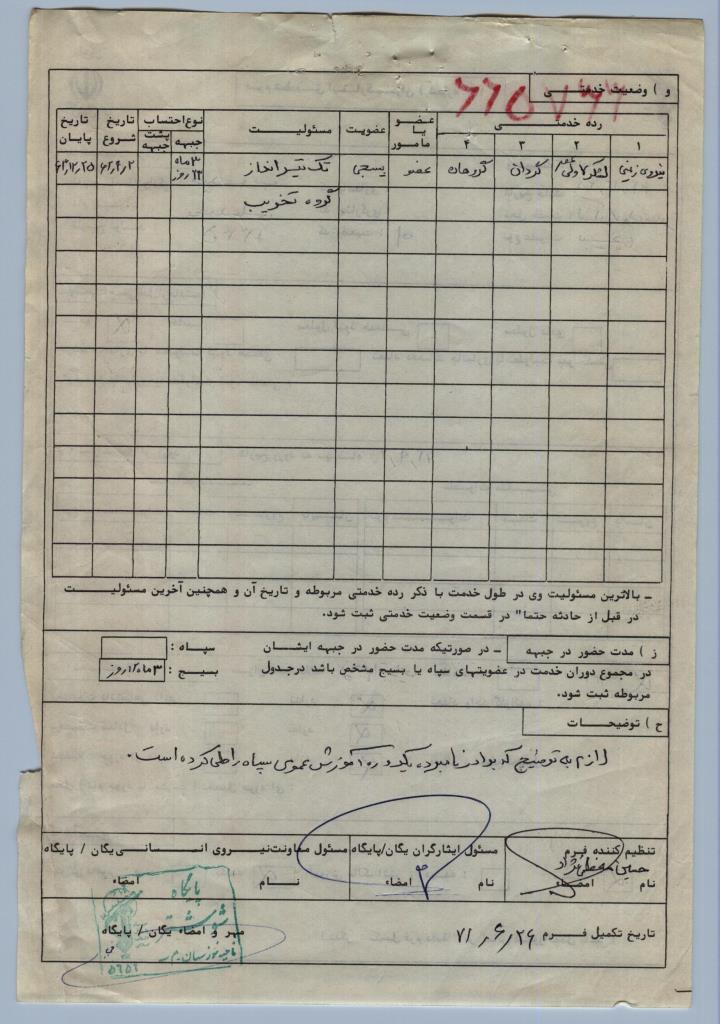 و ) وضعیت خدمتی
رده خدمتی
عضو یا مامور
عضویت
مسئولیت
نوع احتساب
تاریخ شروع
تاریخ پایان
۱
۲
۳
۴
جبهه
پشت جبهه
نیروی زمینی
گردان
گروهان
عضو
بسیجی
تک تیرانداز
۳ ماه
۱۲ روز
گروه تخریب
ـ بالاترین مسئولیت وی در طول خدمت با ذکر رده خدمتی مربوطه و تاریخ آن و همچنین آخرین مسئولیت
در قبل از حادثه حتما" در قسمت وضعیت خدمتی ثبت شود.
ز ) مدت حضور در جبهه
ـ در صورتیکه مدت حضور در جبهه ایشان
سپاه :
در مجموع دوران خدمت در عضویتهای سپاه یا بسیج مشخص باشد درجدول
بسیج : ۳ ماه ۱۲ روز
مربوطه ثبت شود.
ح ) توضیحات
لازم به توضیح که برادر نامبرده یکدوره آموزش عمومی سپاه راطی کرده است.
تنظیم کننده فرم
مسئول ایثارگران یگان/پایگاه
مسئول معاونت نیروی انسانی یگان / پایگاه
نام
امضاء
نام
امضاء
نام
امضاء
تاریخ تکمیل فرم ۷۱٫۶٫۲۶
مهر و امضاء یگان / پایگاه
پایگاه
شوشتر